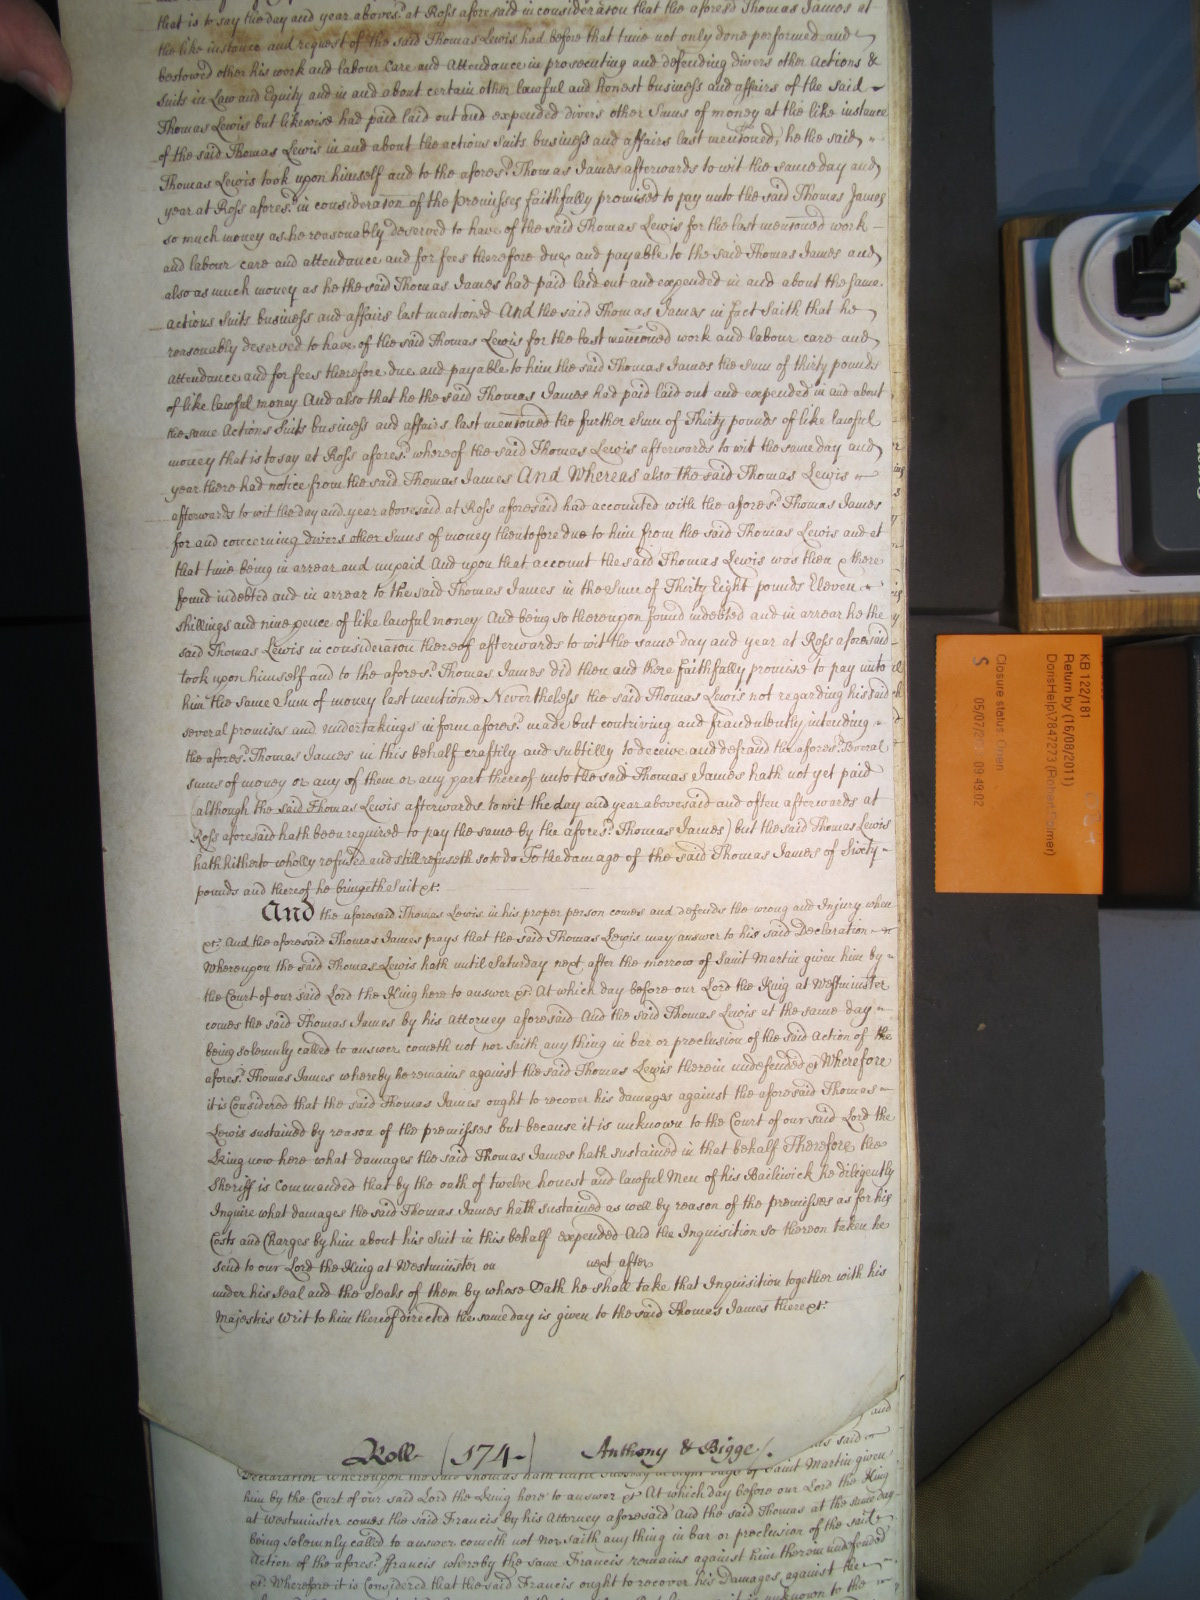 that is to say the day and year aboves:d at Ross aforesaid in consideracon that the aforesd Thomas James at
the like instance and request of the said Thomas Lewis had before that time not only done performed and
bestowed other his work and labour Care and Attendance in prosecuting and defending divers other Actions &
Suits in Law and Equity and in and about certain other lawful and honest business and affairs of the said
Thomas Lewis but likewise had paid laid out and expended divers other Sums of money at the like instance
of the said Thomas Lewis in and about the actions suits business and affairs last mentioned, he the said
Thomas Lewis took upon himself and to the afores:d Thomas James afterwards to wit the same day and
year at Ross afores:d in consideracon of the premisses faithfully promised to pay unto the said Thomas James
so much money as he reasonably deserved to have of the said Thomas Lewis for the last mentioned work
and labour care and attendance and for fees therefore due and payable to the said Thomas James and
also as much money as he the said Thomas James had paid laid out and expended in and about the same
actions Suits business and affairs last mentioned And the said Thomas James in fact saith that he
reasonably deserved to have of the said Thomas Lewis for the last mencioned work and labour care and
attendance and for fees therefore due and payable to him the said Thomas James the Sum of thirty pounds
of like lawful money And also that he the said Thomas James had paid laid out and expended in and about
the same Actions Suits business and affairs last mentioned the further Sum of Thirty pounds of like lawful
money that is to say at Ross afores:d whereof the said Thomas Lewis afterwards to wit the same day and
year there had notice from the said Thomas James And Whereas also the said Thomas Lewis
afterwards to wit the day and year abovesaid at Ross aforesaid had accounted with the afores:d Thomas James
for and concerning divers other Sums of money thentofore due to him from the said Thomas Lewis and at
that time being in arrear and unpaid And upon that account the said Thomas Lewis was then & there
found indebted and in arrear to the said Thomas James in the Sum of Thirty Eight pounds Eleven
shillings and nine pence of like lawful money And being so thereupon found indebted and in arrear he the
said Thomas Lewis in consideracon thereof afterwards to wit the same day and year at Ross aforesaid
took upon himself and to the afores:d Thomas James did then and there faithfully promise to pay unto
him the same Sum of money last mentioned Nevertheless the said Thomas Lewis not regarding his said
several promises and undertakings in form afores:d made but contriving and fraudulently intending
the afores:d Thomas James in this behalf craftily and subtilly to deceive and defraud the afores:d Several
sums of money or any of them or any part thereof unto the said Thomas James hath not yet paid
although the said Thomas Lewis afterwards to wit the day and year abovesaid and often afterwards at
Ross aforesaid hath been required to pay the same by the afores:d Thomas James) but the said Thomas Lewis
hath hitherto wholly refused and still refuseth so to do To the damage of the said Thomas James of Sixty
pounds and thereof he bringeth Suit &c:
And the aforesaid Thomas Lewis in his proper person comes and defends the wrong and Injury when
&c: And the aforesaid Thomas James prays that the said Thomas Lewis may answer to his said Declaration
Whereupon the said Thomas Lewis hath until Saturday next after the morrow of Saint Martin given him by
the Court of our said Lord the King here to answer &c: At which day before our Lord the King at Westminster
comes the said Thomas James by his Attorney aforesaid And the said Thomas Lewis at the same day
being solemnly called to answer cometh not nor saith any thing in bar or preclusion of the said Action of the
afores:d Thomas James whereby he remains against the said Thomas Lewis therein undefended &c Wherefore
it is Considered that the said Thomas James ought to recover his damages against the aforesaid Thomas
Lewis sustained by reason of the premisses but because it is unknown to the Court of our said Lord the
King now here what damages the said Thomas James hath sustained in that behalf Therefore the
Sheriff is Commanded that by the oath of twelve honest and lawful Men of his Bailiwick he diligently
Inquire what damages the said Thomas James hath sustained as well by reason of the premisses as for his
Costs and Charges by him about his Suit in this behalf expended And the Inquisition so thereon taken he
send to our Lord the King at Westminster on next after
under his Seal and the Seals of them by whose Oath he shall take that Inquisition together with his
Majesties Writ to him thereof directed the same day is given to the said Thomas James there &c:
Roll (174) Anthony & Bigge
Declaration Whereupon the said Thomas hath until Tuesday Eight days of Saint Martin given
him by the Court of our said Lord the King here to answer &c At which day before our Lord the King
at Westminster comes the said Francis by his Attorney aforesaid And the said Thomas at the same day
being solemnly called to answer cometh not nor saith any thing in bar or preclusion of the said
Action of the afores:d Francis whereby the same Francis remains against him therein undefended
&c: Wherefore it is Considered that the said Francis ought to recover his Damages against the
KB 122/181
Return by (16/08/2011)
DorisHelp\7847273 (Robert Palmer)
Closure status: Open
S 05/07/2011 09:49:02